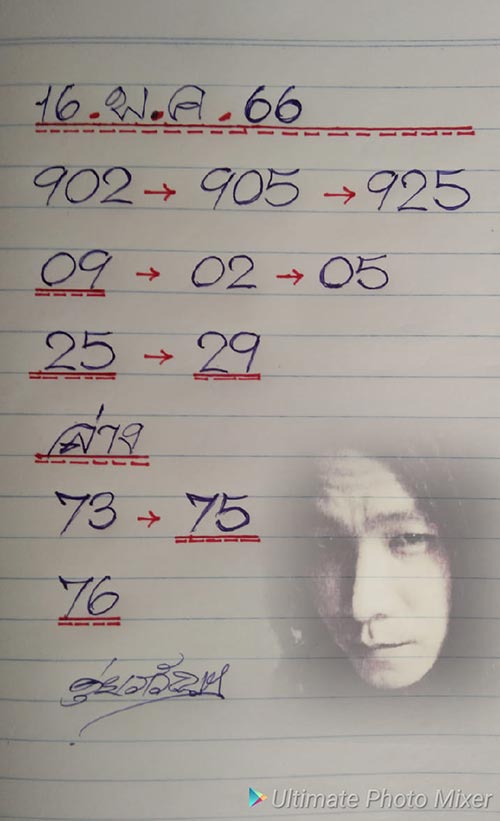 16.พ.ค.66
902→905→925
09→02→05
25→29
ล่าง
73→75
76
Ultimate Photo Mixer